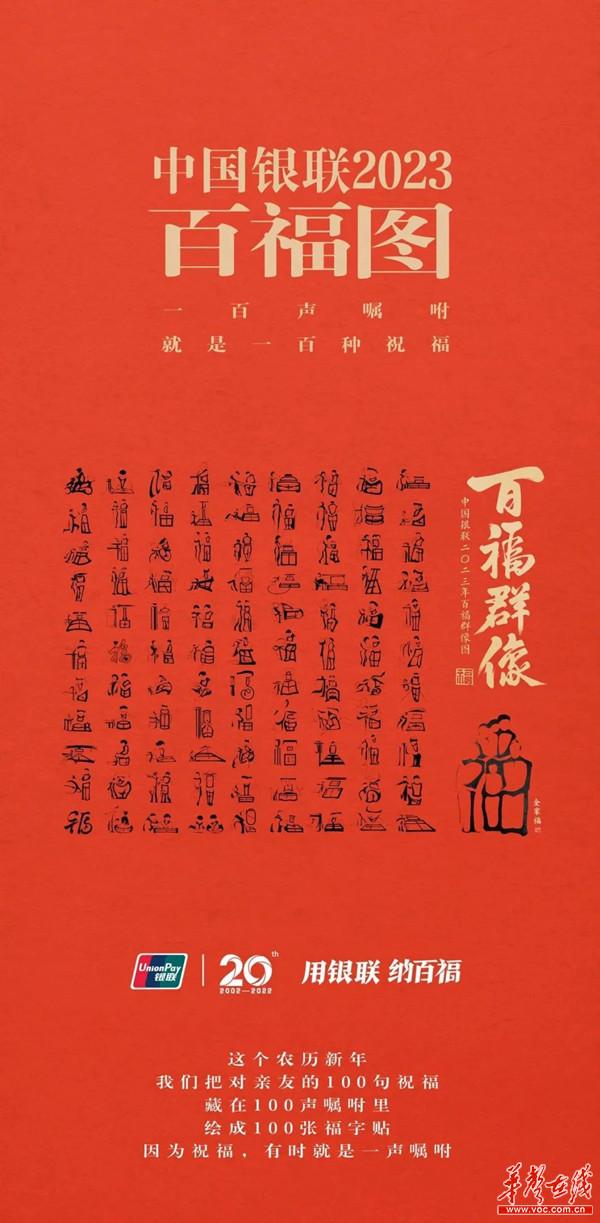 中国银联2023
百福图
一百声嘱咐
就是一百种祝福
百福群像
中国银联二〇二三年百福群像图
福
全家福
UnionPay
银联
20th
2002—2022
用银联 纳百福
这个农历新年
我们把对亲友的100句祝福
藏在100声嘱咐里
绘成100张福字贴
因为祝福，有时就是一声嘱咐
华声在线
www.voc.com.cn